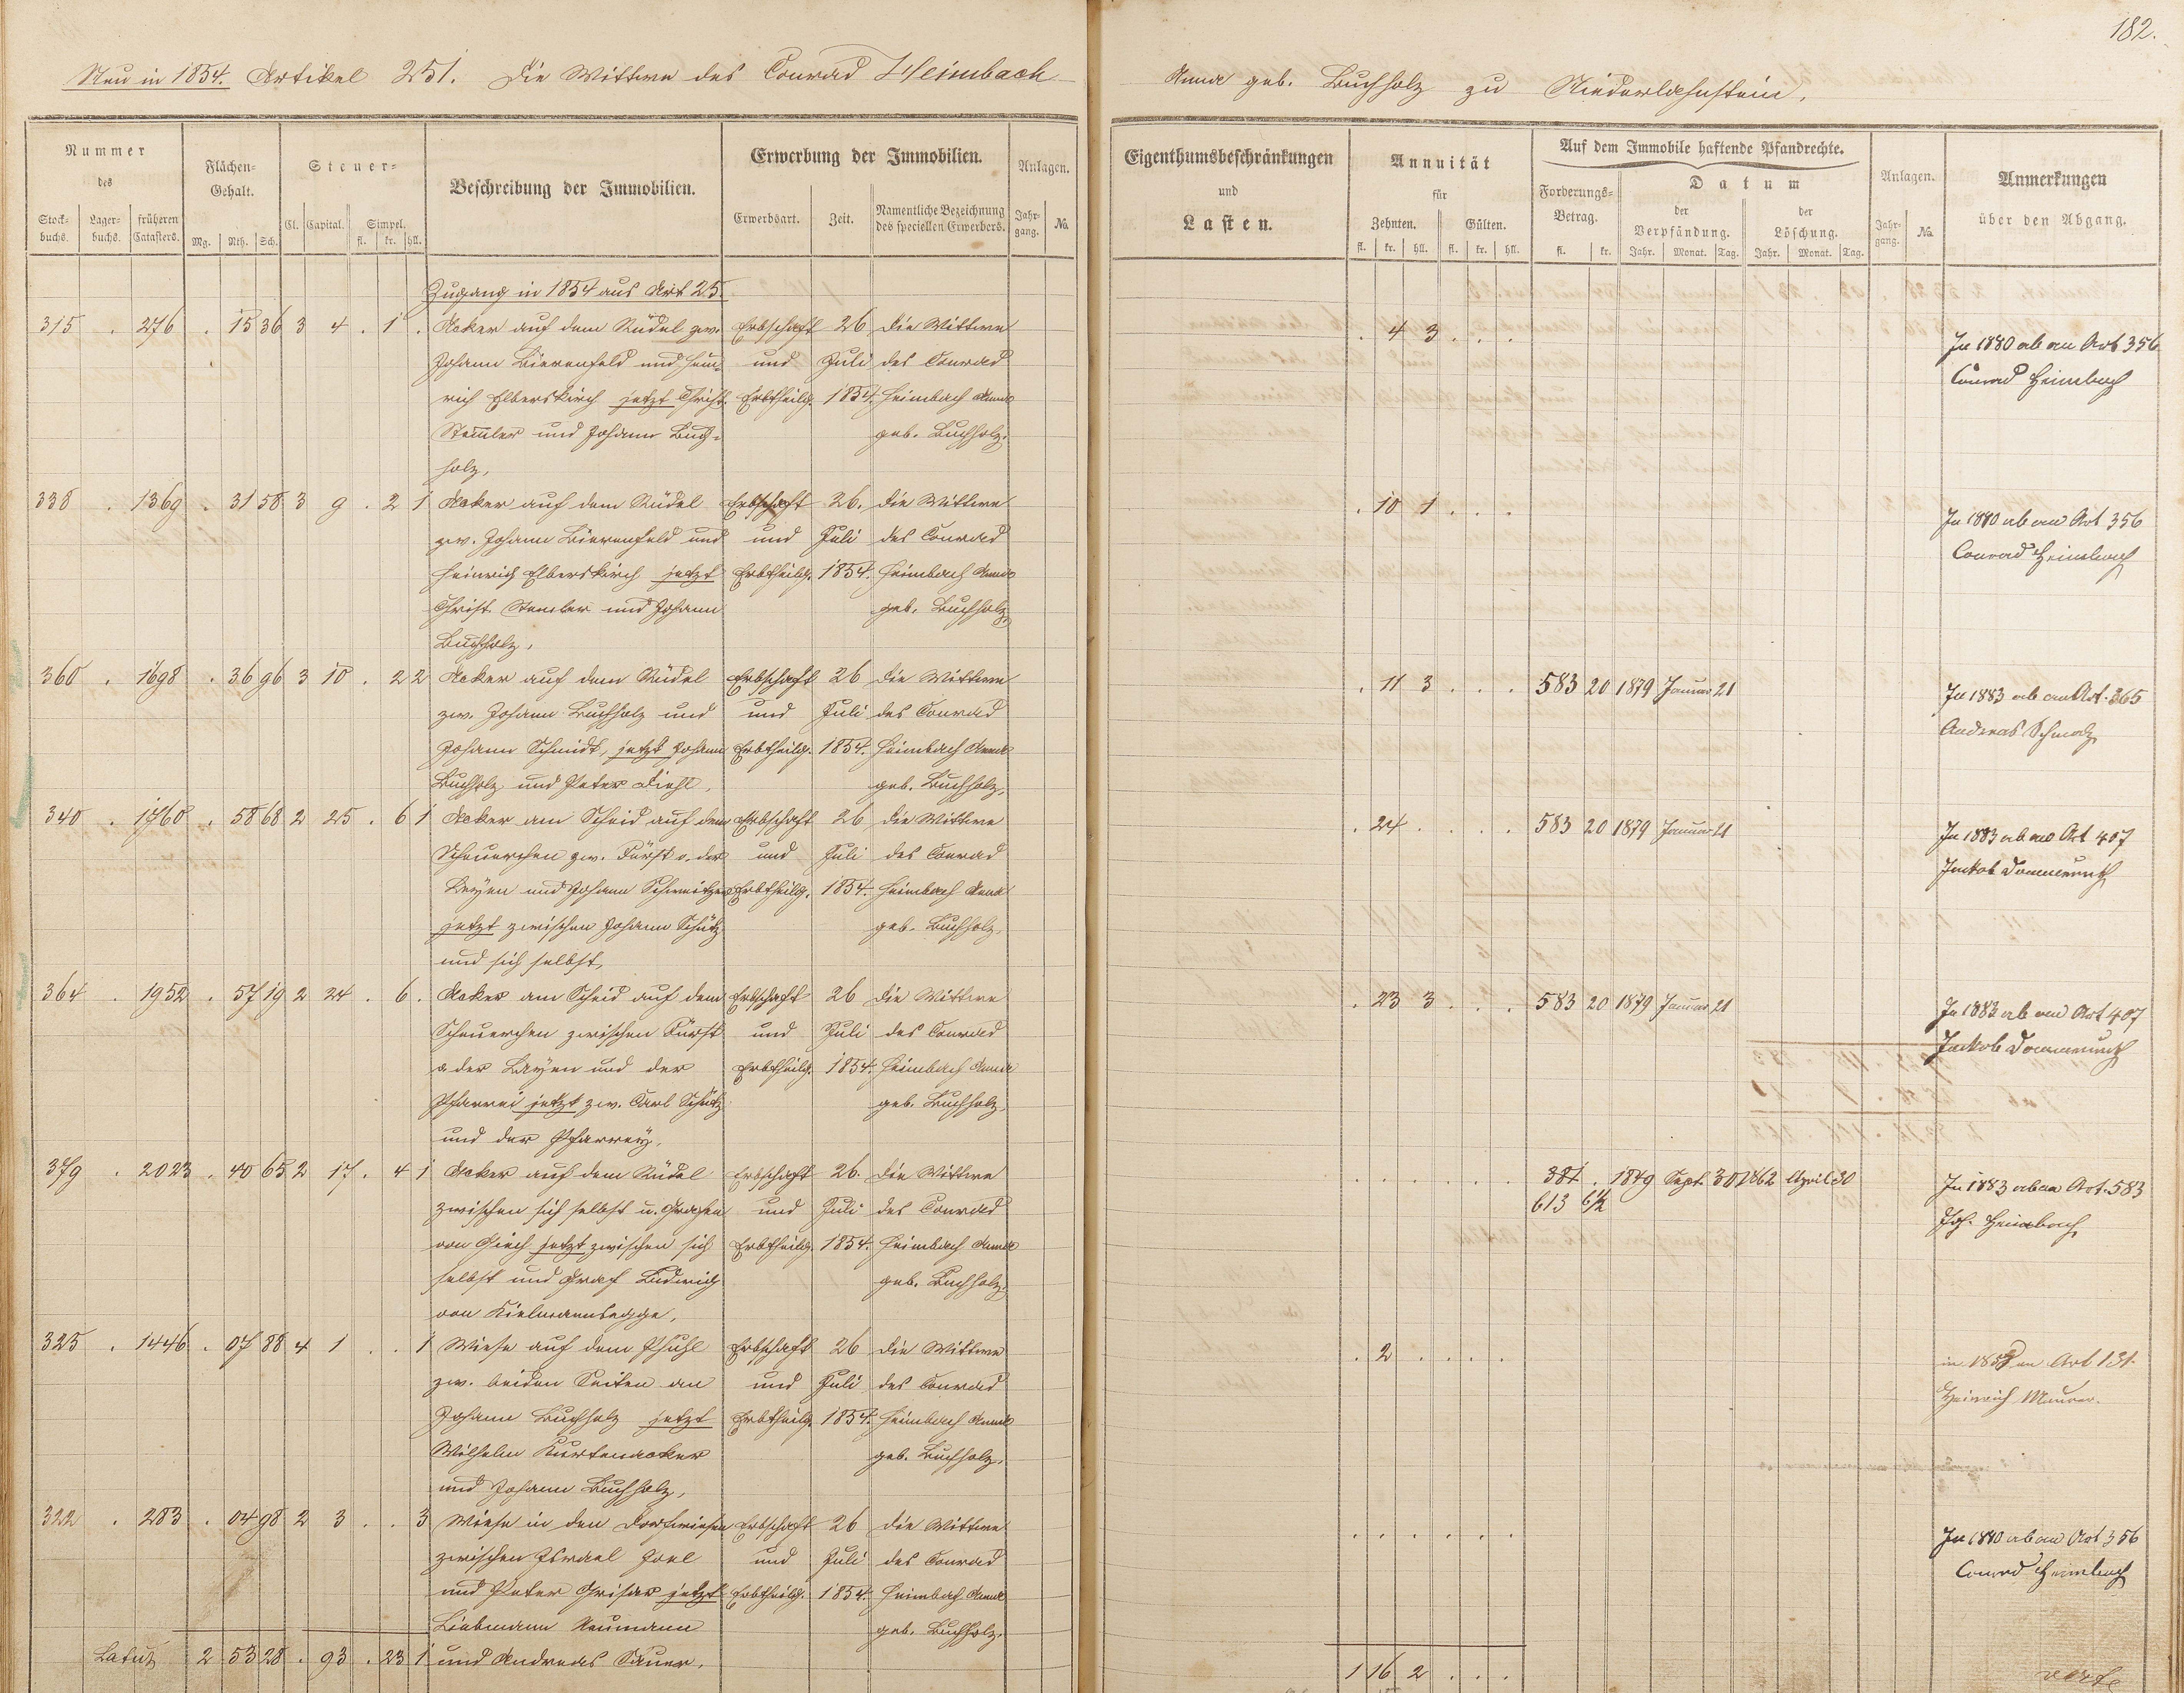 182.
Neu in 1854. Artikel 251. Die Wittwe des Conrad Heimbach
Anna geb. Buchholz zu Niederlahnstein.
Nummer
des
Stock-
buchs.
Lager-
buchs.
früheren
Catasters.
Flächen-
Gehalt.
Mg. Rth. Sch.
Steuer-
Cl. Capital. Simpel.
fl. kr. hll.
Beschreibung der Immobilien.
Erwerbung der Immobilien.
Erwerbsart. Zeit. Namentliche Bezeichnung
des speciellen Erwerbers.
Anlagen.
Jahr-
gang. No.
Eigenthumsbeschränkungen
und
Lasten.
Annuität
für
Zehnten. Gülten.
fl. kr. hll. fl. kr. hll.
Auf dem Immobile haftende Pfandrechte.
Forderungs-
Betrag.
fl. kr.
Datum
der
Verpfändung.
Jahr. Monat. Tag.
der
Löschung.
Jahr. Monat. Tag.
Anlagen.
Jahr-
gang. No.
Anmerkungen
über den Abgang.
Zugang in 1854 aus Art 25.
315 . 276 . 15 36 3 4 . 1 . Acker auf dem Rüdel zw. Erbschaft 26 die Wittwe . 4 3 . . .
Johann Bierenfeld und Hein- und Juli des Conrad In 1880 ab an Art 356
rich Elberskirch jetzt Christ. Erbtheilg. 1854. Heimbach Anna Conrad Heimbach
Stemler und Johann Buch- geb. Buchholz.
holz,
338 . 1369 . 31 58 3 9 . 2 1 Acker auf dem Rüdel Erbschaft 26. die Wittwe . 10 1 . . .
zw. Johann Bierenfeld und und Juli des Conrad In 1880 ab an Art 356
Heinrich Elberskirch jetzt Erbtheilg. 1854. Heimbach Anna Conrad Heimbach
Christ. Stemler und Johann geb. Buchholz.
Buchholz,
360 . 1698 . 36 96 3 10 . 2 2 Acker auf dem Rüdel Erbschaft 26 die Wittwe . 11 3 . . . 583 20 1879 Januar 21
zw. Johann Buchholz und und Juli des Conrad In 1883 ab an Art. 365
Johann Schmidt, jetzt Johann Erbtheilg. 1854. Heimbach Anna Andreas Schmalz
Buchholz und Peter Diehl, geb. Buchholz,
340 . 1760 . 58 68 2 25 . 6 1 Acker am Scheid auf dem Erbschaft 26 die Wittwe . 24 . . . . 583 20 1879 Januar 21
Scheuerchen zw. Fürst v. der und Juli des Conrad In 1883 ab an Art 407
Leyen und Johann Schweitzer Erbtheilg. 1854. Heimbach Anna Jakob
jetzt zwischen Johann Schütz geb. Buchholz,
und sich selbst,
364 . 1952 . 57 19 2 24 . 6 . Acker am Scheid auf dem Erbschaft 26 die Wittwe . 23 3 . . . 583 20 1879 Januar 21
Scheuerchen zwischen Fürst und Juli des Conrad In 1883 ab an Art 407
v. der Leyen und der Erbtheilg. 1854. Heimbach Anna Jakob
Pfarrei jetzt zw. Carl Schütz geb. Buchholz,
und der Pfarrey,
379 . 2023 . 40 65 2 17 . 4 1 Acker auf dem Rüdel Erbschaft 26. die Wittwe . . . . . . 381 . 1849 Sept. 30 1862 April 30
zwischen sich selbst u. Grafen und Juli des Conrad 613 6½ In 1883 ab an Art. 583
von Giech jetzt zwischen sich Erbtheilg. 1854. Heimbach Anna Joh. Heimbach
selbst und Graf Ludwig geb. Buchholz,
von Kielmannsegge,
325 . 1446 . 07 88 4 1 . . 1 Wiese auf dem Pfuhl Erbschaft 26 die Wittwe . 2 . . . .
zw. beiden Seiten an und Juli des Conrad in 1857 an Art 131.
Johann Buchholz jetzt Erbtheilg. 1854. Heimbach Anna Heinrich Maurer.
Wilhelm Kurtenacker geb. Buchholz,
und Johann Buchholz,
322 . 283 . 04 98 2 3 . . 3 Wiese in den Dorfwiesen Erbschaft 26 die Wittwe . . . . . .
zwischen Israel Joel und Juli des Conrad In 1880 ab an Art 356
und Peter Grisar jetzt Erbtheilg. 1854. Heimbach Anna Conrad Heimbach
Liebmann Neumann geb. Buchholz.
Latus 2 53 28 . 93 . 23 1 und Andreas Sauer, 1 16 2 . . .
verte